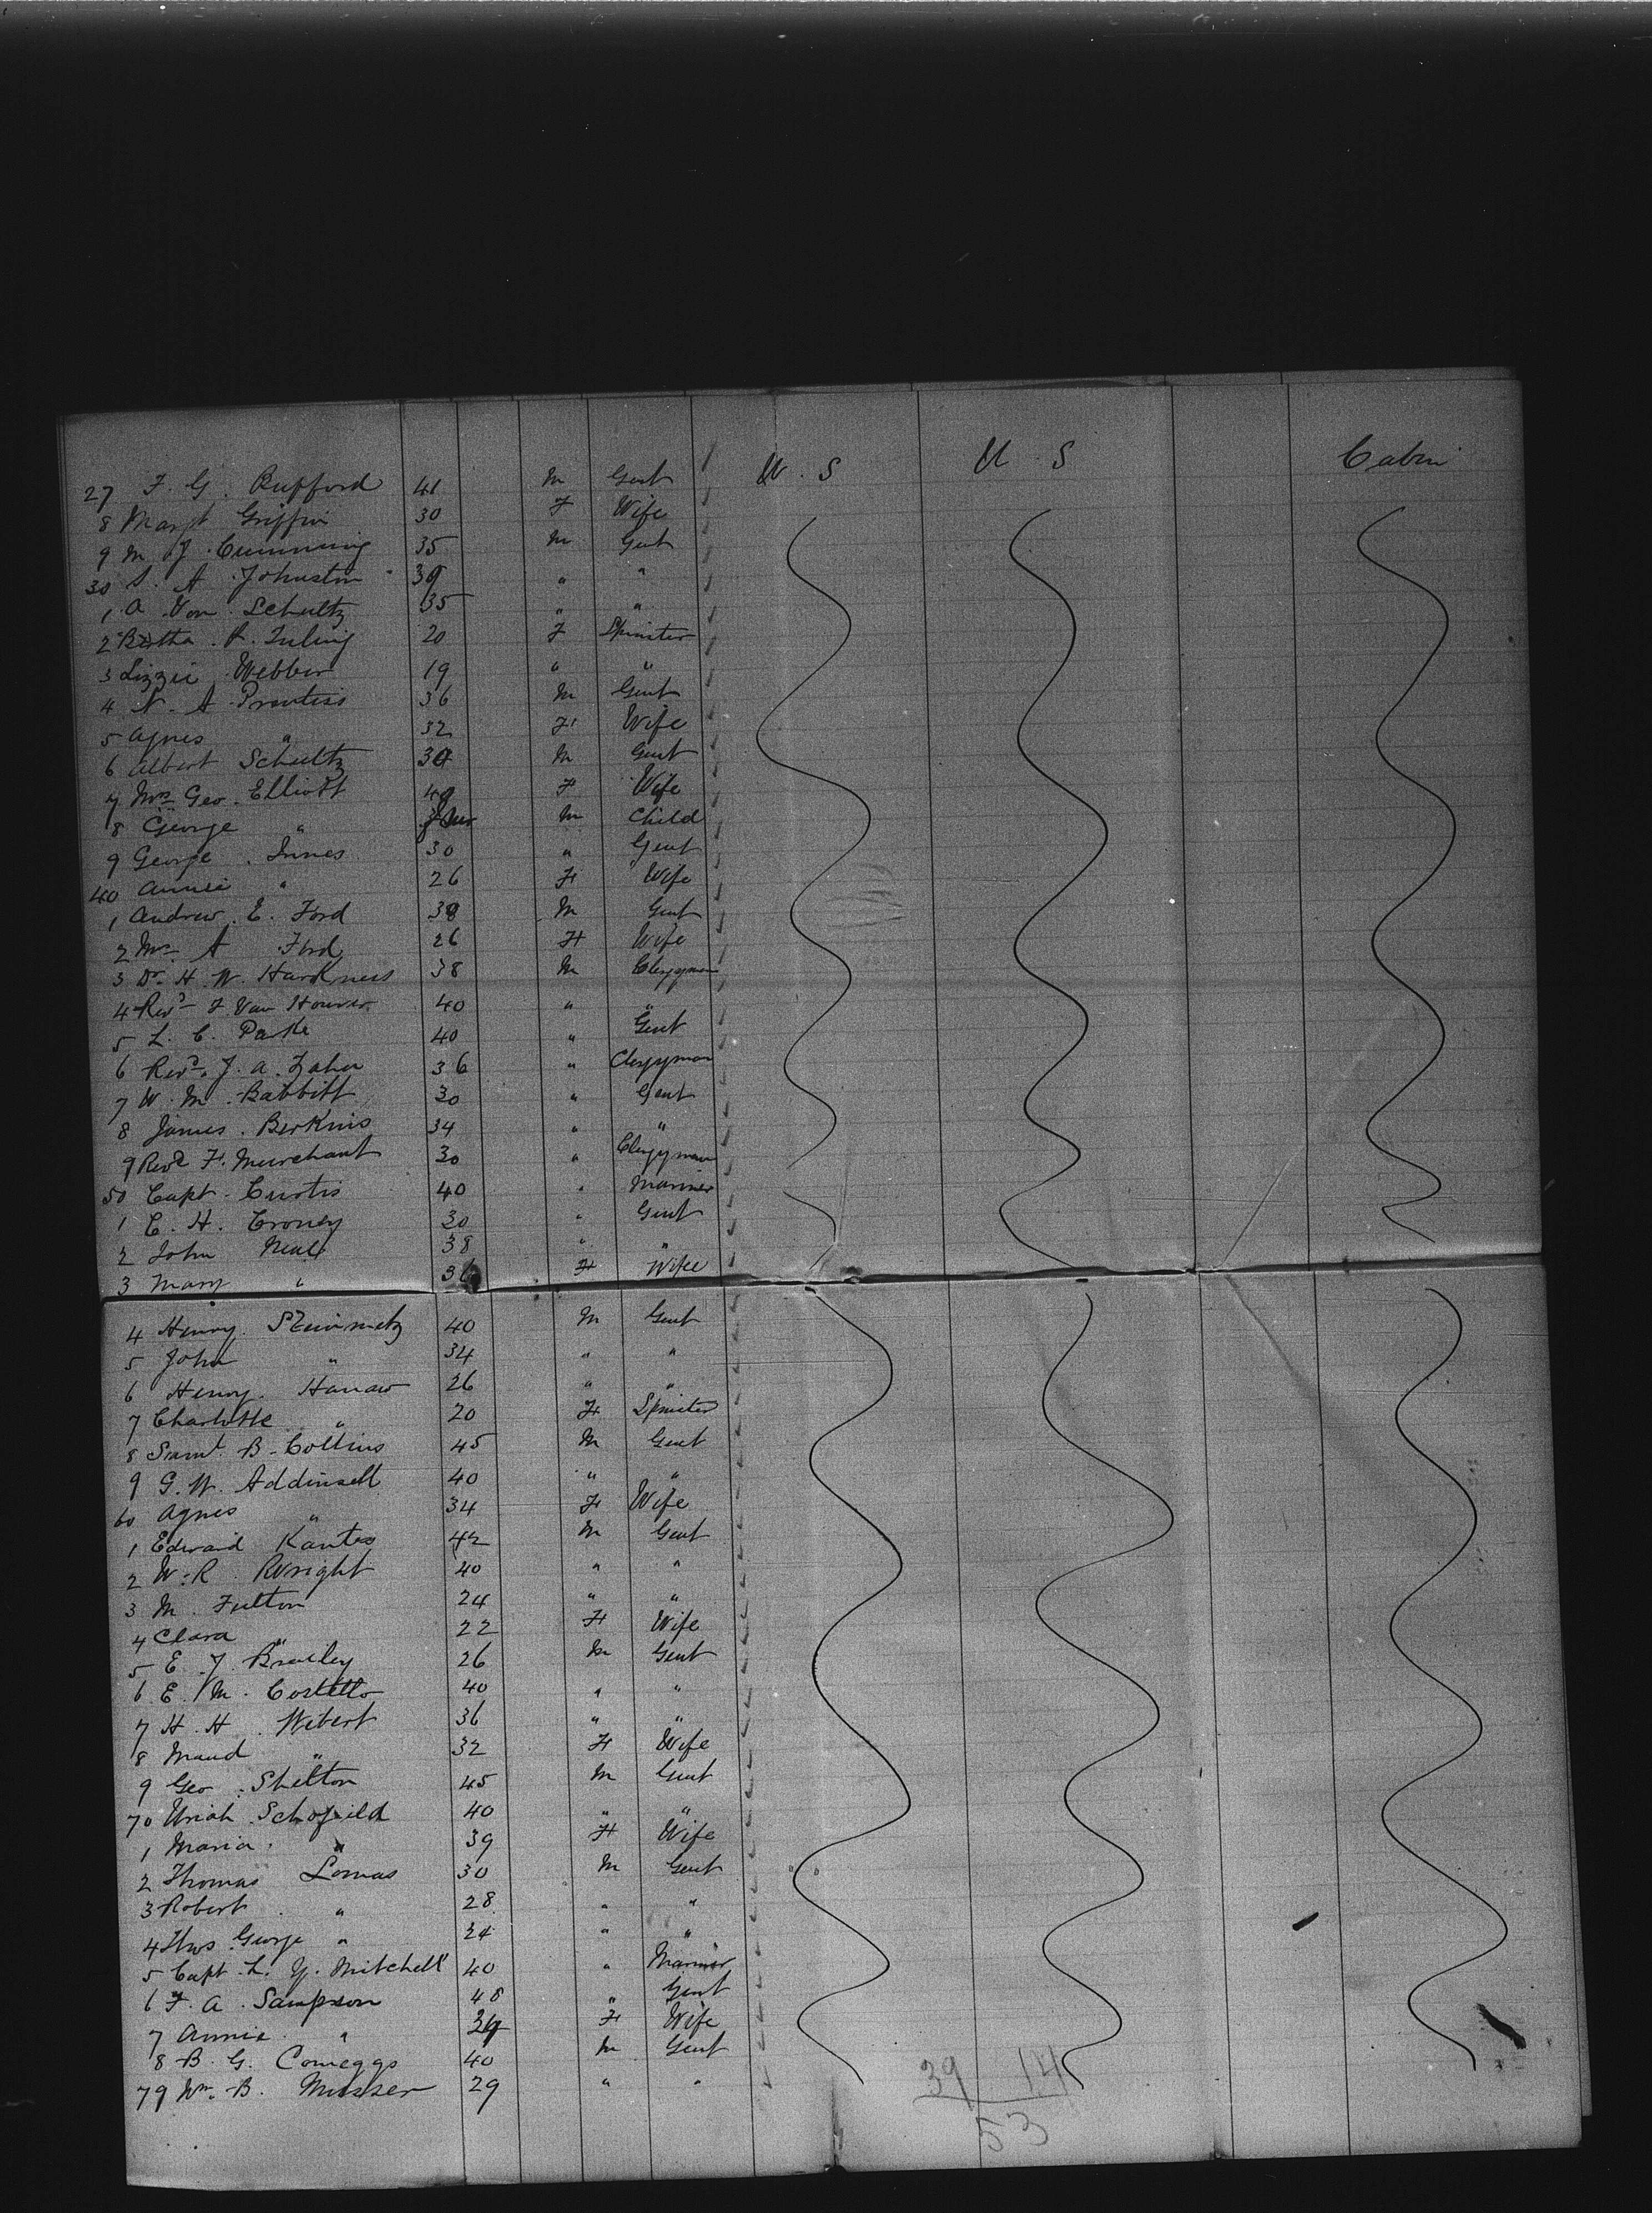 27 F. G. Rufford 41 M Gent U. S U. S Cabin
8 Margt Griffin 30 F Wife
9 M. J. Cumming 35 M Gent
30 S. A. Johnston 39 " "
1 A. Von Schultz 35 " "
2 Bertha A. 20 F Spinster
3 Lizzie Webber 19 " "
4 N. A. Prentiss 36 M Gent
5 Agnes " 32 F Wife
6 Albert Schultz 34 M Gent
7 Mrs Geo. Elliott 40 F Wife
8 George " M Child
9 George Innes 30 " Gent
40 Annie " 26 F Wife
1 Andrew E. Ford 38 M Gent
2 Mrs A Ford 26 F Wife
3 Dr. H. W. Harkness 38 M Clergyman
4 Revd F. Van 40 " "
5 L. C. Parke 40 " Gent
6 Revd. J. A. Zahn 36 " Clergyman
7 W. M. Babbitt 30 " Gent
8 James Berkins 34 " "
9 Revd F. Murchant 30 " Clergyman
50 Capt. Curtis 40 " Mariner
1 C. H. Croney 30 " Gent
2 John Neal 38 " "
3 Mary " 36 F Wife
4 Henry Steinmetz 40 M Gent
5 John " 34 " "
6 Henry Hanaw 26 " "
7 Charlotte " 20 F Spinster
8 Saml. B. Collins 45 M Gent
9 G. W. Addinsell 40 " "
60 Agnes " 34 F Wife
1 Edward Kantes 42 M Gent
2 W. R. Wright 40 " "
3 M. Fulton 24 " "
4 Clara " 22 F Wife
5 E. J. Brailey 26 M Gent
6 E. M. Costello 40 " "
7 H. H. Wibert 36 " "
8 Maud " 32 F Wife
9 Geo. Shelton 45 M Gent
70 Uriah Schofield 40 " "
1 Maria " 39 F Wife
2 Thomas Lomas 30 M Gent
3 Robert " 28 " "
4 Thos George " 24 " "
5 Capt. L. G. Mitchell 40 " Mariner
6 F. A. Sampson 48 " Gent
7 Annie " 34 F Wife
8 B. G. Comeggs 40 M Gent
79 Wm. B. Musser 29 " "
39 14
53